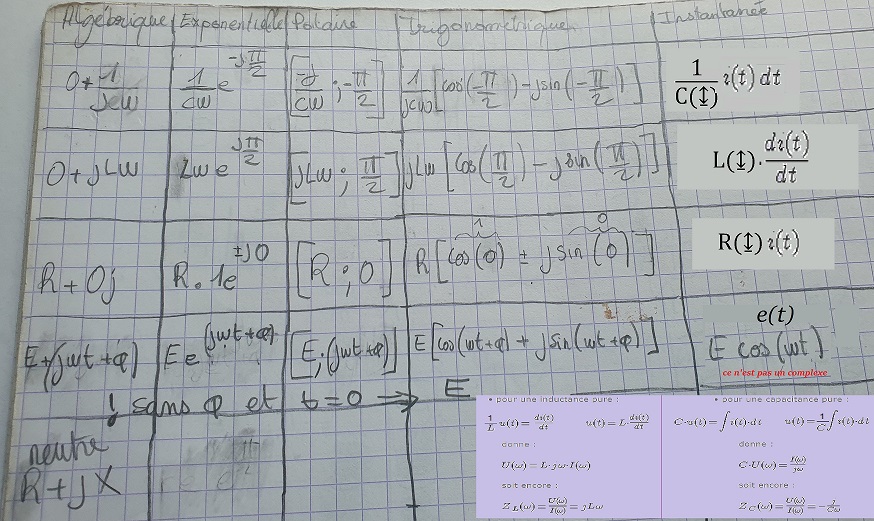 Algébrique Exponentielle Polaire Trigonométrique Instantanée
0+1/jcω 1/cω e^-jπ/2 [-j/cω ; -π/2] 1/jcω [cos(-π/2) - jsin(-π/2)] 1/C(↕) i(t) dt
0+jLω Lω e^jπ/2 [jLω ; π/2] jLω [cos(π/2) - jsin(π/2)] L(↕)·di(t)/dt
1 0
R+0j R.1e^±j0 [R ; 0] R[cos(0) ± jsin(0)] R(↕) i(t)
e(t)
E+(jωt+φ) E e^(jωt+φ) [E ; (jωt+φ)] E[cos(ωt+φ) + jsin(ωt+φ)] E cos(ωt)
ce n'est pas un complexe
! sans φ et t=0 → E
neutre
R+jX
• pour une inductance pure :
1/L u(t) = di(t)/dt u(t) = L·di(t)/dt
donne :
U(ω) = L·jω·I(ω)
soit encore :
Z_L(ω) = U(ω)/I(ω) = jLω
• pour une capacitance pure :
C·u(t) = ∫i(t)·dt u(t) = 1/C ∫i(t)·dt
donne :
C·U(ω) = I(ω)/jω
soit encore :
Z_C(ω) = U(ω)/I(ω) = -j/Cω